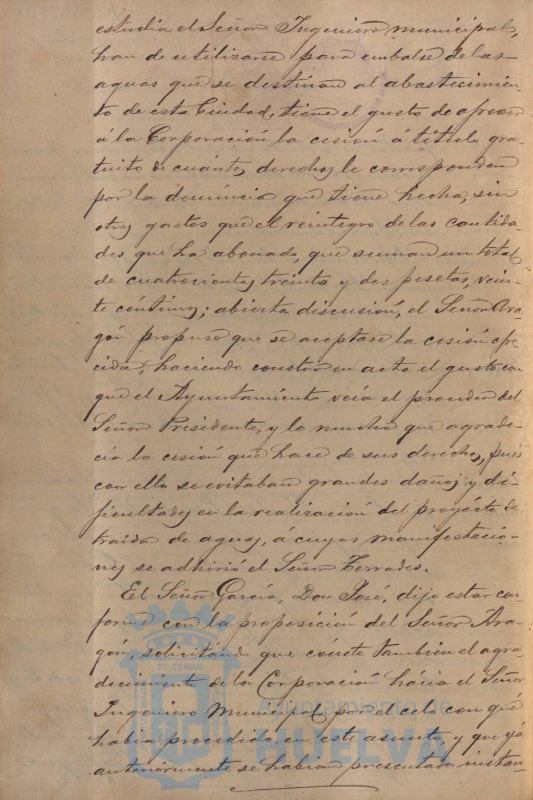 estudia el Señor Ingeniero municipal,
han de utilizarse para embalse de las
aguas que se destinan al abastecimien-
to de esta Ciudad, tiene el gusto de ofrecer
á la Corporación la cesión á título gra-
tuito de cuantos derechos le corresponden
por la denuncia que tiene hecha, sin
otros gastos que el reintegro de las cantida-
des que ha abonado, que suman un total
de cuatrocientas treinta y dos pesetas, vein-
te céntimos; abierta discusión, el Señor Ara-
gón propuso que se aceptase la cesión ofre-
cida, haciendo constar en acta el gusto con
que el Ayuntamiento veía el proceder del
Señor Presidente, y lo mucho que agrade-
cía la cesión que hace de sus derechos, pues
con ello se evitaban grandes daños y di-
ficultades en la realización del proyecto de
traida de aguas, á cuyas manifestacio-
nes se adhirió el Señor Terrades.
El Señor García, Don José, dijo estar con-
forme con la proposición del Señor Ara-
gón, solicitando que conste también el agra-
decimiento de la Corporación hácia el Señor
Ingeniero Municipal por el celo con que
había procedido en este asunto, y que ya
anteriormente se habían presentado instan-
Ayuntamiento de
HUELVA